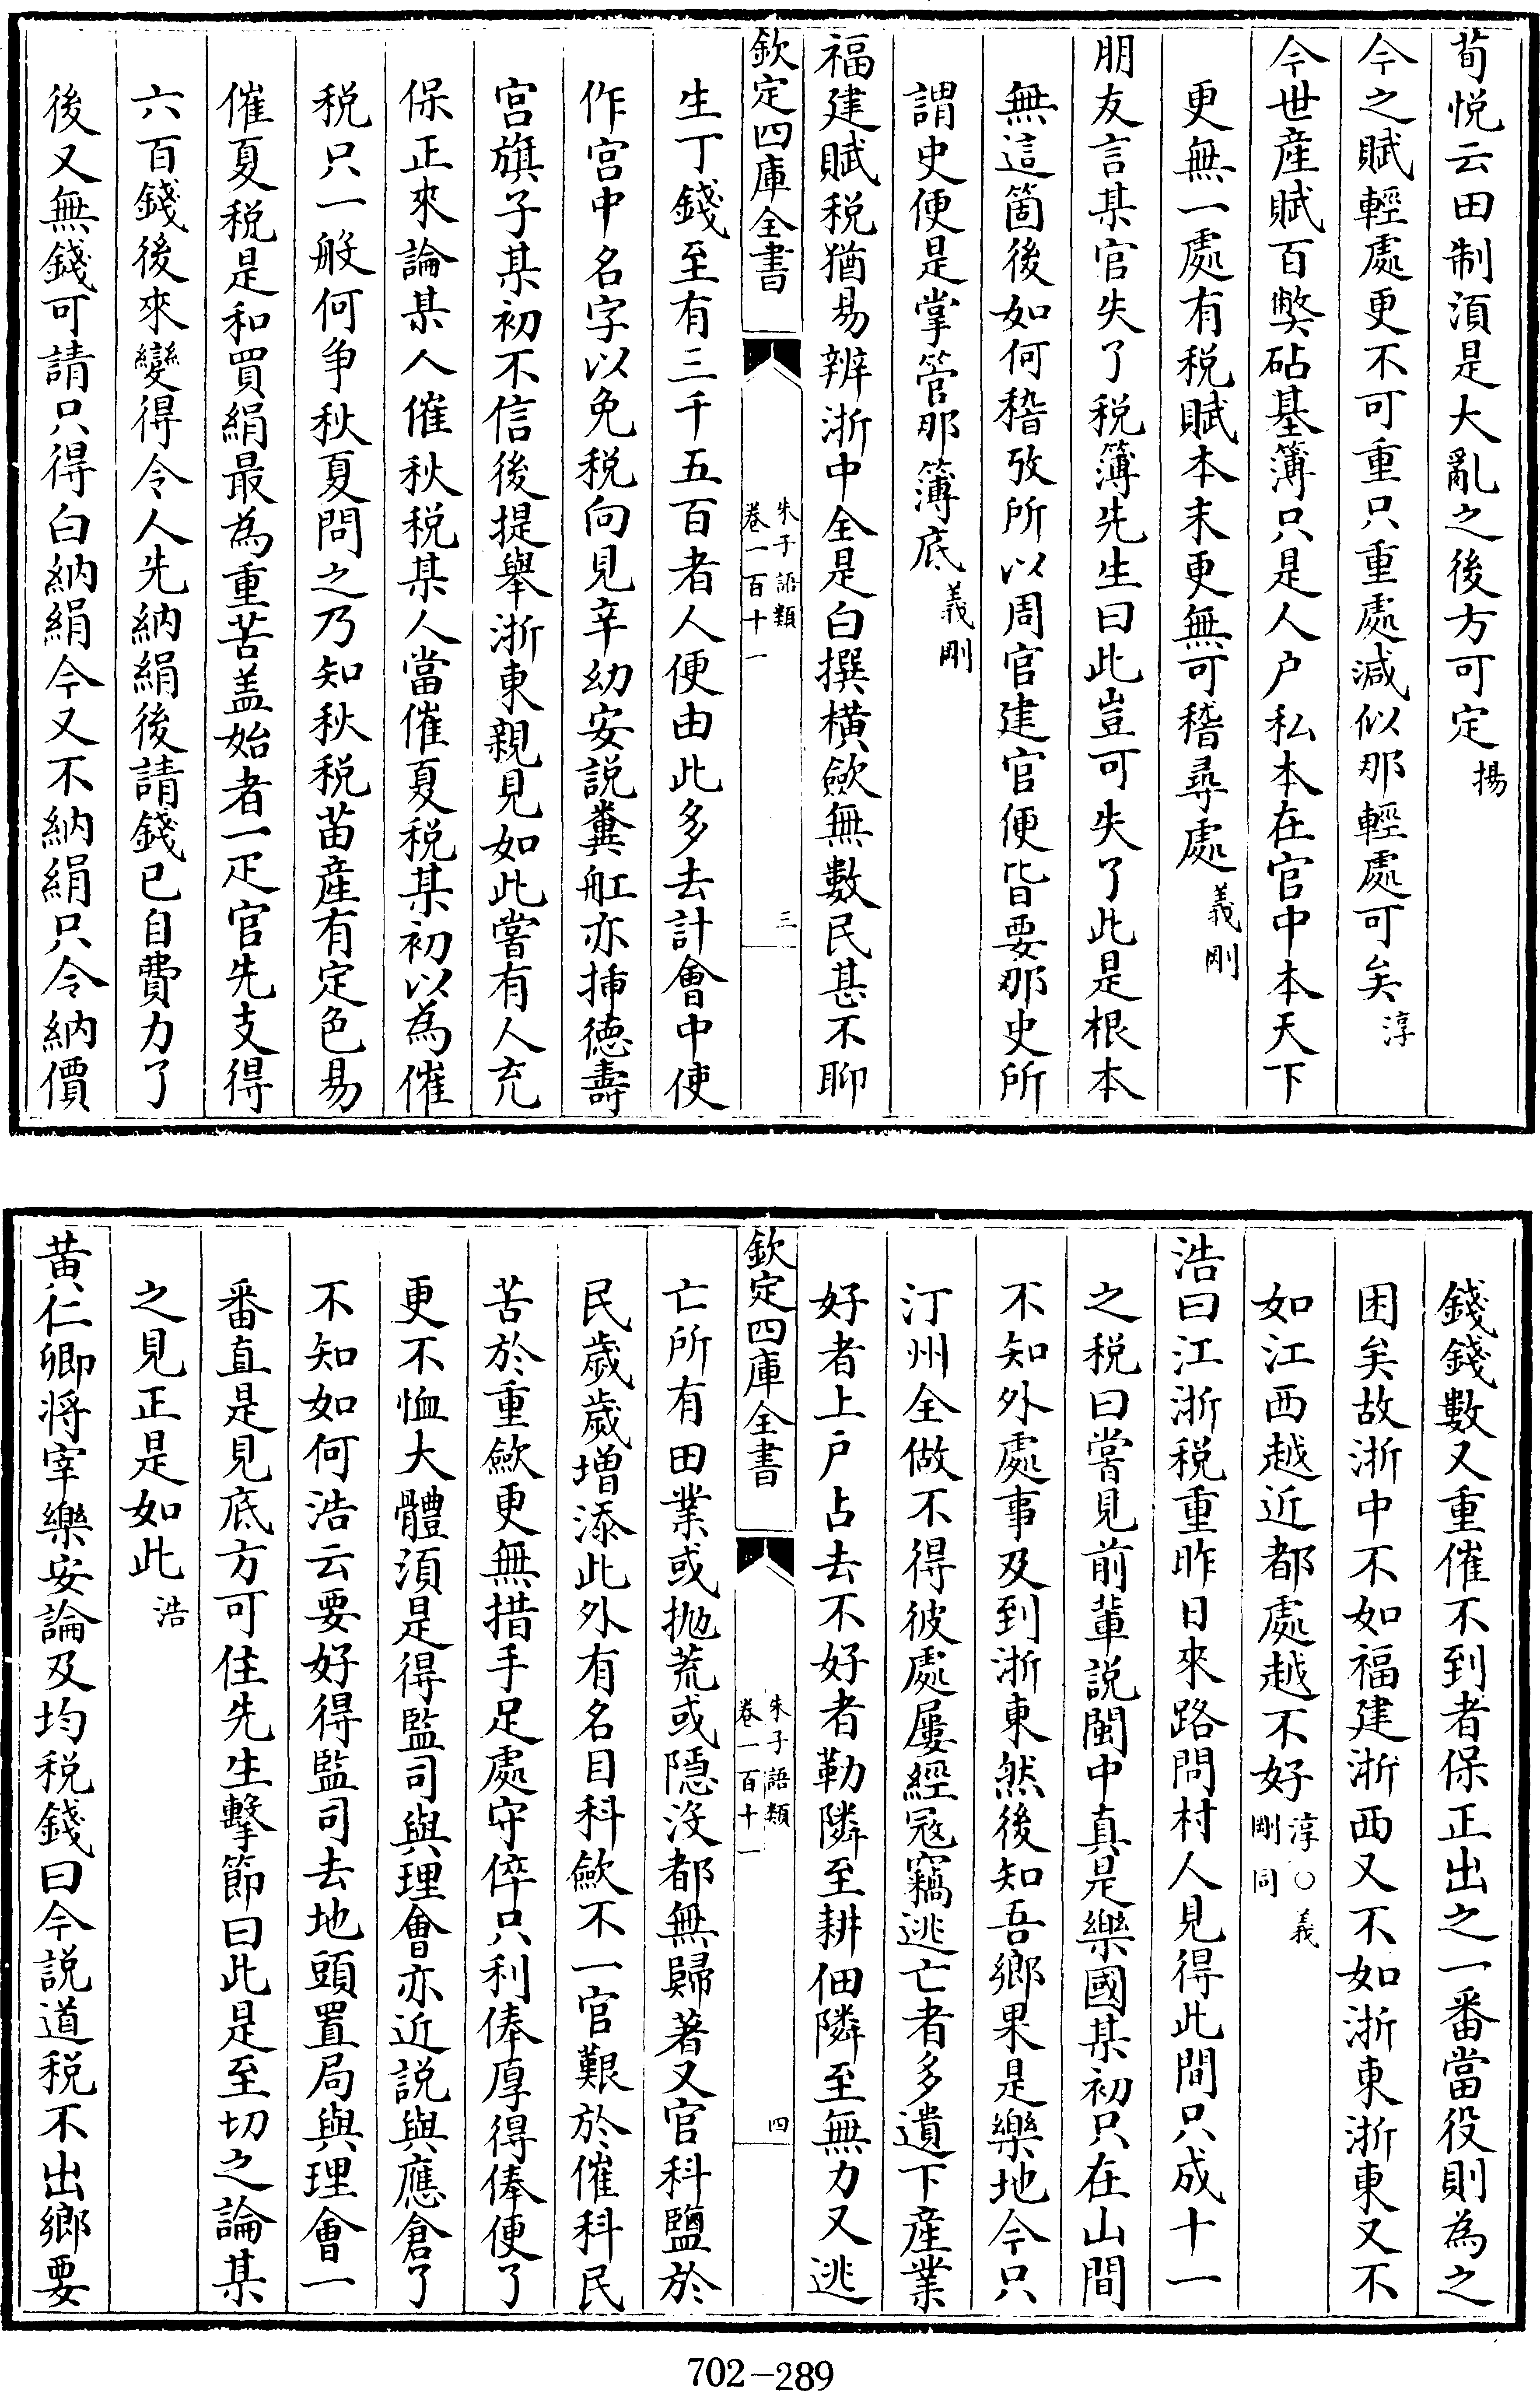 荀悦云田制湏是大亂之後方可定揚
今之賦輕處更不可重只重處減似那輕處可矣淳
今世産賦百弊砧基簿只是人户私本在官中本天下
更無一處有税賦本末更無可稽尋處義剛
朋友言某官失了税簿先生曰此豈可失了此是根本
無這箇後如何稽攷所以周官建官便皆要那史所
謂史便是掌管那簿底義剛
福建賦税猶易辨浙中全是白撰橫歛無數民甚不聊
欽定四庫全書
朱子語類
卷一百十一
三
生丁錢至有三千五百者人便由此多去計會中使
作宫中名字以免税向見辛幼安説糞舡亦揷徳壽
宫旗子某初不信後提舉浙東親見如此嘗有人充
保正來論某人催秋税某人當催夏税某初以為催
税只一般何争秋夏問之乃知秋税苗産有定色易
催夏税是和買絹最為重苦盖始者一疋官先支得
六百錢後來變得令人先納絹後請錢已自費力了
後又無錢可請只得白納絹今又不納絹只令納價
錢錢數又重催不到者保正出之一番當役則為之
困矣故浙中不如福建浙西又不如浙東浙東又不
如江西越近都處越不好淳○義剛同
浩曰江浙税重昨日來路問村人見得此間只成十一
之税曰嘗見前輩説閩中真是樂國某初只在山間
不知外處事及到浙東然後知吾鄉果是樂地今只
汀州全做不得彼處屢經冦竊逃亡者多遺下産業
好者上户占去不好者勒隣至耕佃隣至無力又逃
欽定四庫全書
朱子語類
卷一百十一
四
亡所有田業或抛荒或隠沒都無歸著又官科鹽於
民歲歲增添此外有名目科歛不一官艱於催科民
苦於重歛更無措手足處守倅只利俸厚得俸便了
更不恤大體湏是得監司與理會亦近説與應倉了
不知如何浩云要好得監司去地頭置局與理會一
番直是見底方可住先生擊節曰此是至切之論某
之見正是如此浩
黄仁卿將宰樂安論及均税錢曰今説道税不出鄉要
702-289